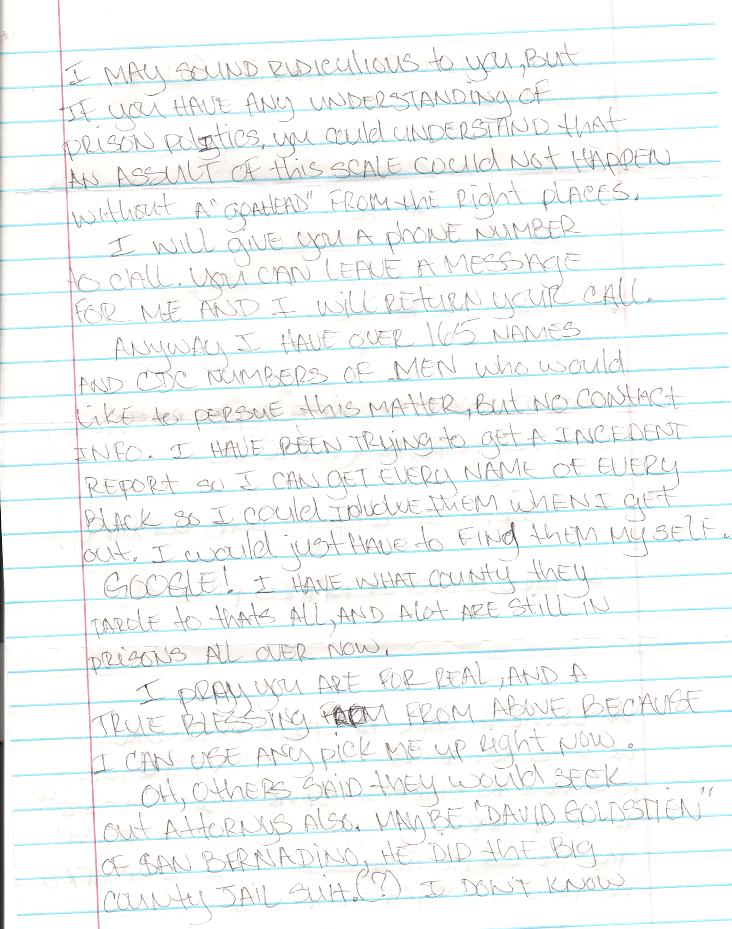 I MAY SOUND RIDICULIOUS to you, But
If you HAVE ANY UNDERSTANDING OF
PRISON POLITICS, you could UNDERSTAND that
AN ASSULT OF this SCALE COULD NOT HAPPEN
without A "GOAHEAD" FROM the Right places.
I will give you A phone NUMBER
to CALL. you CAN LEAVE A MESSAGE
FOR ME AND I WILL RETURN YOUR CALL.
ANYWAY I HAVE OVER 165 NAMES
AND CDC NUMBERS OF MEN who would
Like to PERSUE this MATTER, But NO CONTACT
INFO. I HAVE BEEN TRYING to get A INCEDENT
REPORT so I CAN GET EVERY NAME OF EVERY
BLACK so I could INCLUDE THEM WHEN I get
out. I would just HAVE to FIND them MY SELF.
GOOGLE! I HAVE WHAT COUNTY they
PAROLE to thats ALL, AND Alot ARE Still IN
PRISONS ALL OVER NOW.
I PRAY you ARE FOR REAL, AND A
TRUE BLESSING FROM ABOVE BECAUSE
I CAN USE ANY pick ME up Right NOW.
OH, OTHERS SAID they would SEEK
out ATTORNYS Also. MAYBE "DAVID GOLDSTIEN"
OF SAN BERNADINO, HE DID the BIG
COUNTY JAIL SUIT.(?) I DON'T KNOW